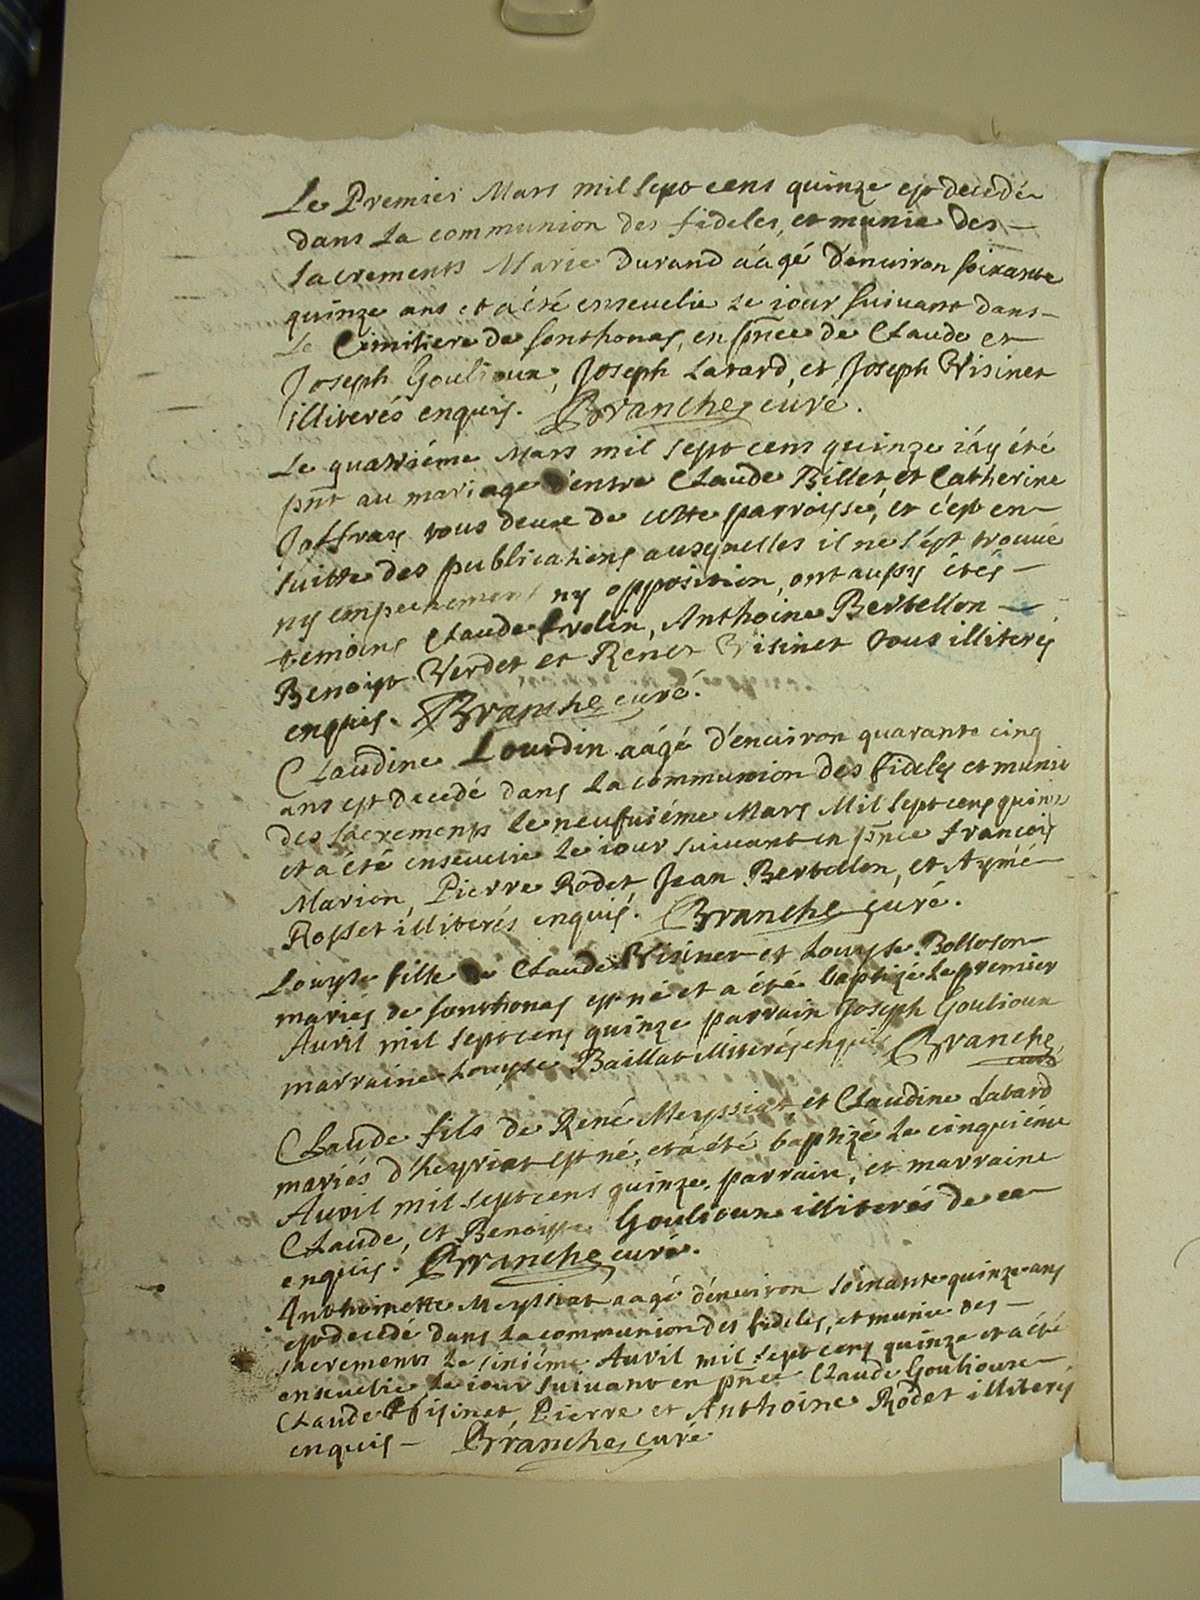 Le Premier Mars mil sept cens quinze est decedée
dans la communion des fideles, et munie des
sacrements Marie Durand aâgé d'enuiron soixante
quinze ans et a été enseuelie le iour suiuant dans
Le Cimitiere de sonthonas, en pñce de Claude et
Joseph Goulioux, Joseph Latard, et Joseph Visinet
illiterés enquis. Branche curé.
Le quatriéme Mars mil sept cens quinze i'ay été
pñt au mariage d'entre Claude Billet et Catherine
Joffray tous deux de cette parroisse, et c'est en
suitte des publications ausquelles il ne s'est trouué
ny empechement ny opposition, ont aussy étés
temoins Claude Anthoine Bertellon
Benoist Verdet et René Visinet tous illiterés
enquis. Branche curé.
Claudine Lourdin aâgé d'enuiron quarante cinq
ans est decedé dans la communion des fideles et munie
des sacrements le neufuiéme Mars Mil sept cens quinze
et a été enseuelie le iour suiuant en pñce francois
Marion, Pierre Rodet, Jean Bertellon, et Aymé
Rosset illiterés enquis. Branche curé.
Louyse fille de Claude Visinet et Louyse Bolloson
mariés de sonthonas est né et a été baptizé le premier
Auril mil sept cens quinze parrain Joseph Goulioux
marraine Louyse Baillat illiterés enquis Branche
curé
Claude fils de René Meyssiat, et Claudine Latard
mariés d'heyriat est né, et a été baptizé le cinquiéme
Auril mil sept cens quinze, parrain, et marraine
Claude, et Benoiste Goulioux illiterés de ce
enquis. Branche curé.
Anthoinette Meyssiat aagé d'enuiron soixante quinze ans
est decedé dans la communion des fideles, et munie des
sacrements le sixiéme Auril mil sept cens quinze et a été
enseuelie le iour suiuant en pñce Claude Goulioux
Claude Visinet, Pierre et Anthoine Rodet illiterés
enquis Branche curé